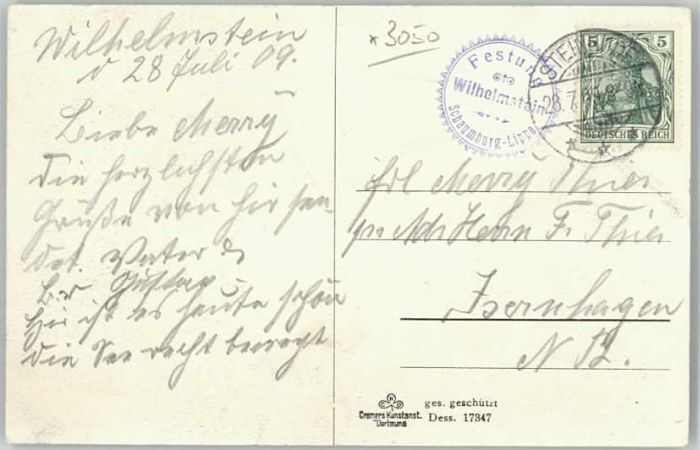 Wilhelmstein
d 28 Juli 09.
Liebe Merry
Die herzlichsten
Grüße von hier sen-
det. Vater &
Br Gustav
Hir ist es heute schön
die See recht bewegt
*3050
Festung
Wilhelmstein
Schaumburg-Lippe
STEINHUDE
28.7.
5 5
DEUTSCHES REICH
Frl Merry Thies
pr Adr Herrn F. Thies
Isernhagen
N B.
Cremers Kunstanst.
Dortmund
ges. geschützt
Dess. 17347